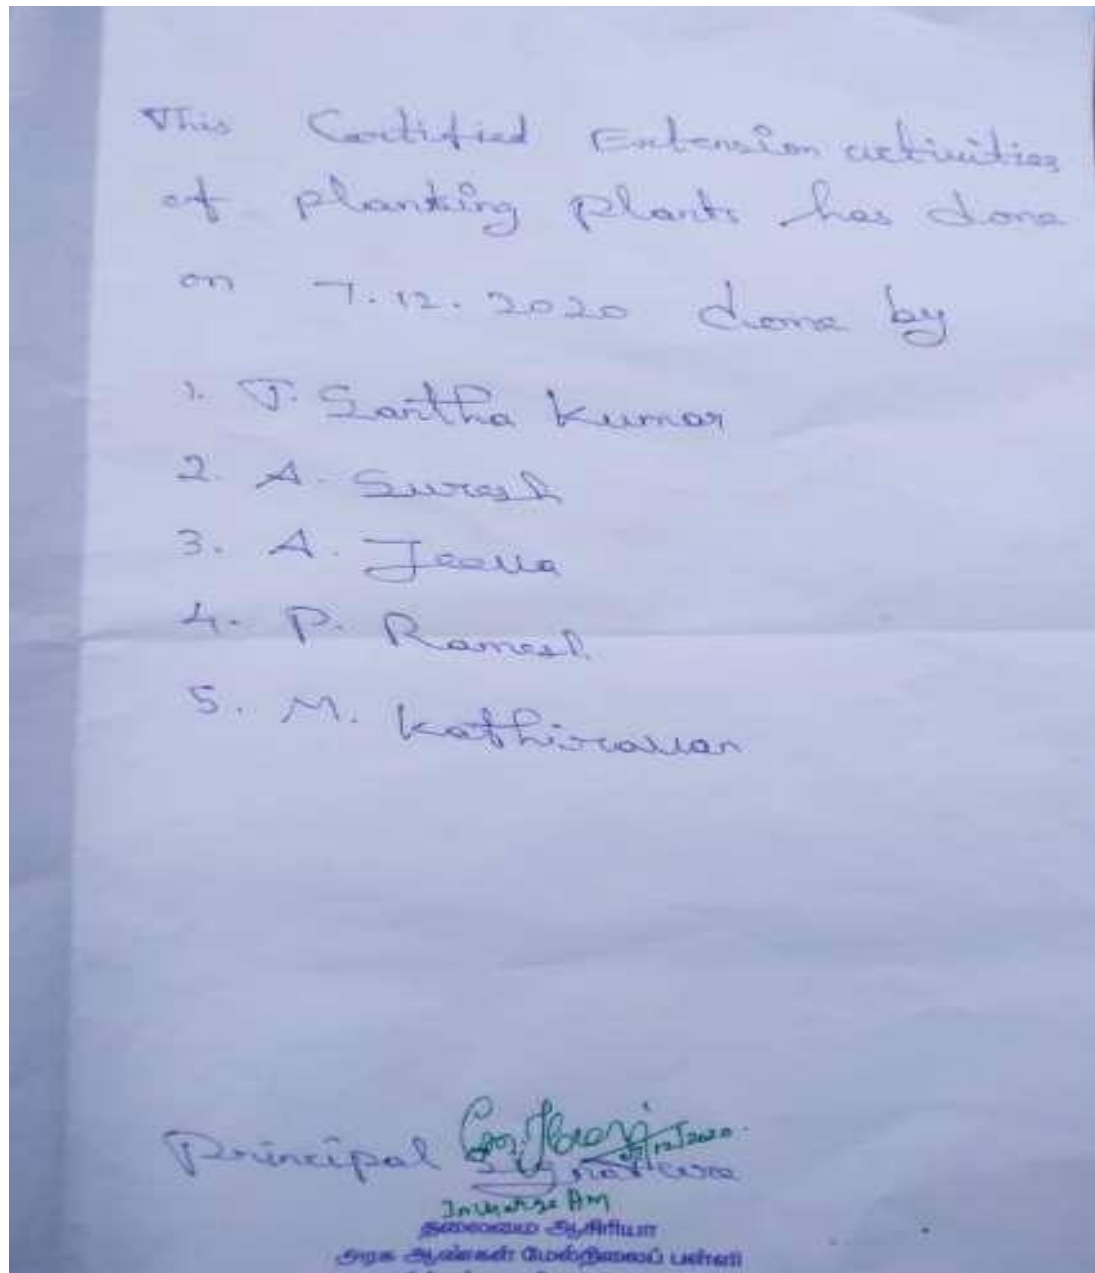 This Certified Extension activities
of planting plants has done
on 7.12.2020 done by
1. T. Santha Kumar
2. A. Suresh
3. A. Jeeva
4. P. Ramesh
5. M. Kathiravan
Principal Signature
Incharge HM
தலைமை ஆசிரியர்
அரசு ஆண்கள் மேல்நிலைப் பள்ளி